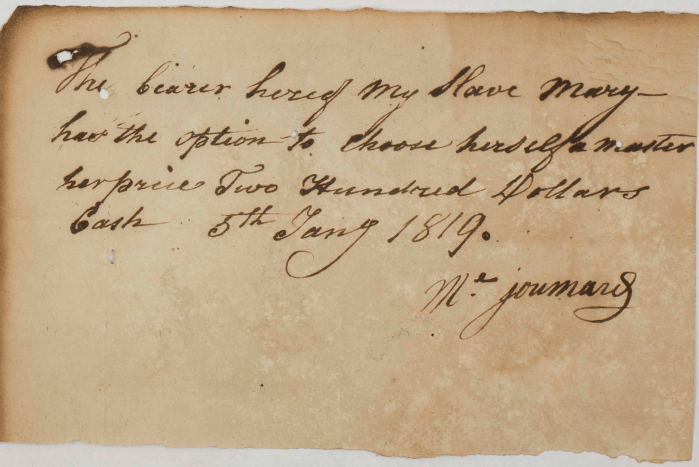 The bearer hereof My Slave Mary–
has the option to choose herself a master
her price Two Hundred Dollars
Cash 5th Jany 1819.
Me joumard